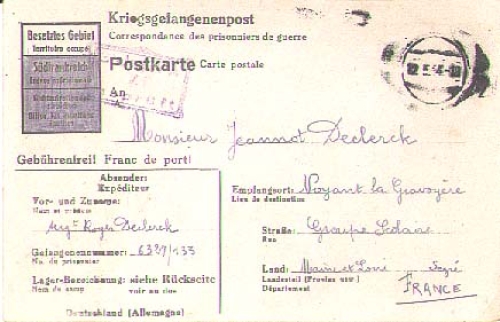 Kriegsgefangenenpost
Correspondance des prisonniers de guerre
Besetztes Gebiet
Territoire occupé
Südfrankreich
Postkarte Carte postale
An
A
Monsieur Jeannot Declerck
Gebührenfrei! Franc de port!
Absender:
Expéditeur
Vor- und Zuname:
Nom et prénom
Sergt Roger Declerck
Gefangenennummer: 6329/133
No. du prisonnier
Lager-Bezeichnung: siehe Rückseite
Nom du camp voir au dos
Deutschland (Allemagne)
Empfangsort: Noyant la Gravoyère
Lieu de destination
Straße: Groupe Scolaire
Rue
Land: Maine et Loire Segré
Landesteil (Provinz usw.)
Département
FRANCE